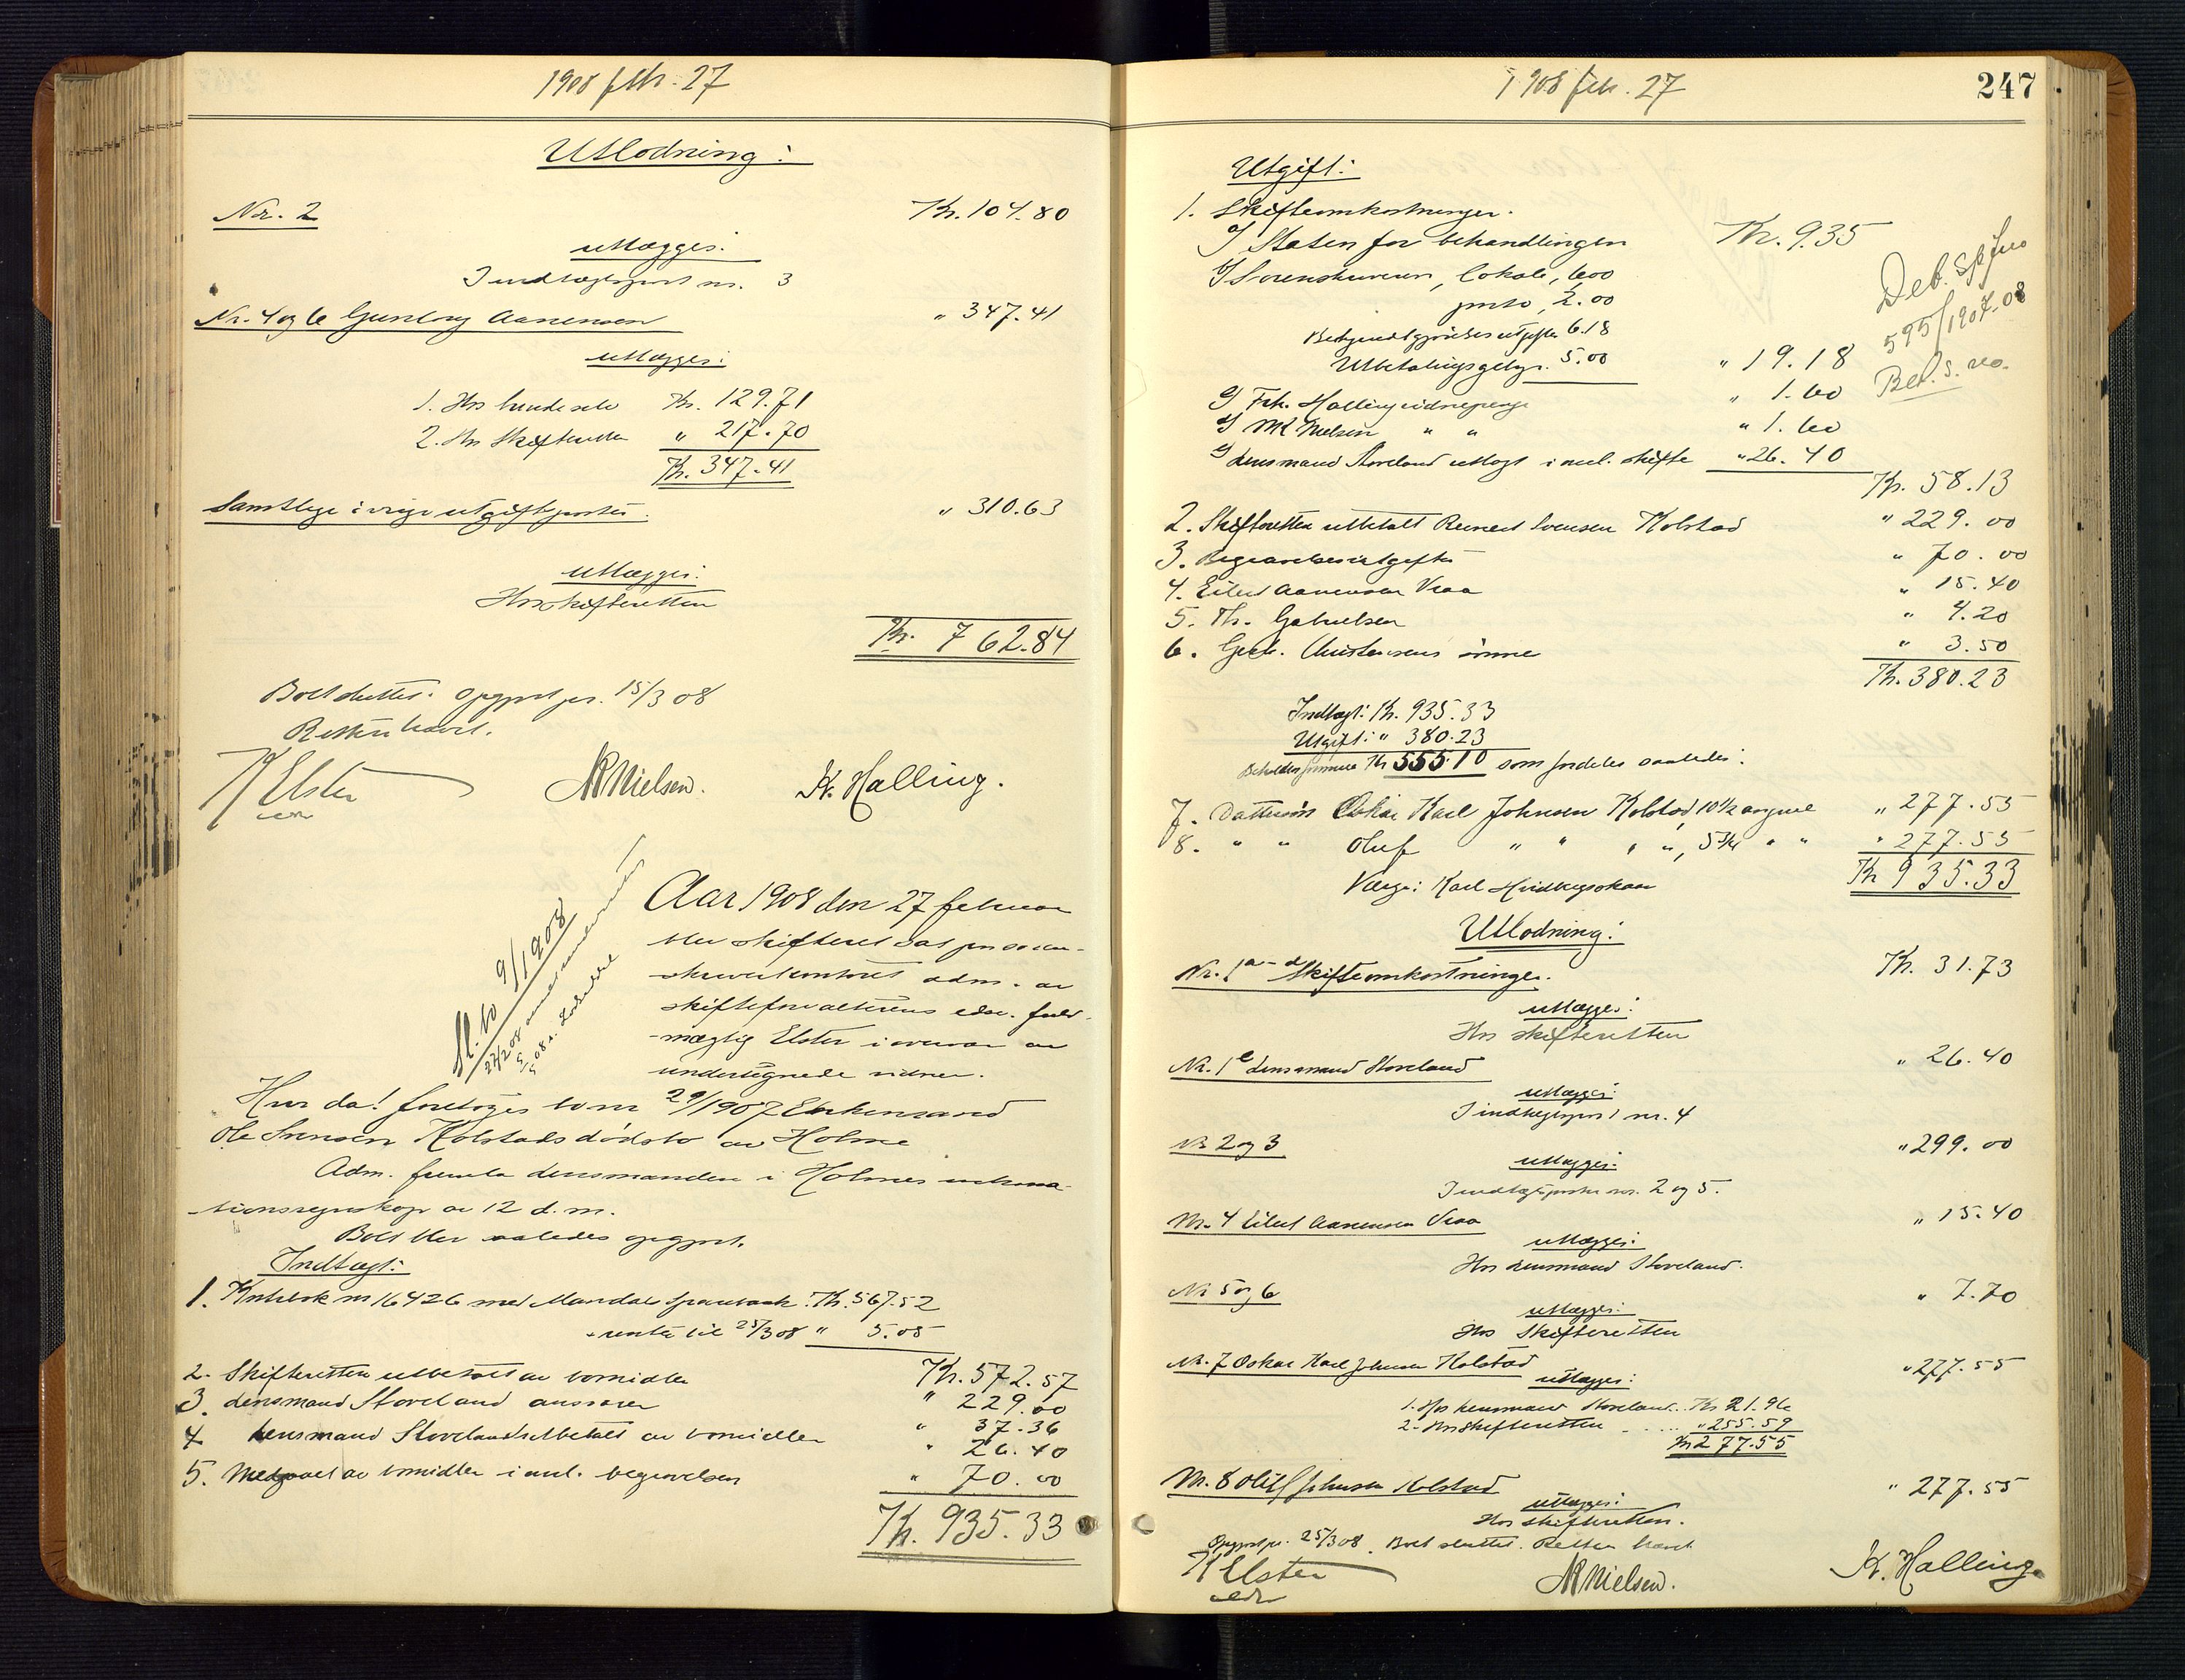 1908 febr. 27
Utlodning:
Nr. 2 Kr. 104.80
utlægges:
Indtægtspost nr. 3
Nr. 4 og 6 Gunborg Aanensen " 347.41
utlægges:
1. Hos hende selv Kr. 129.71
2. Hos Skifteretten " 217.70
Kr. 347.41
Samtlige øvrige utgiftsposter. " 310.63
utlægges:
Hos skifteretten
Kr. 762.84
Boet sluttet. Opgjort pr. 15/3 08
Retten hævet.
K Elster
edsv.
MNielsen.
K. Halling.
Sk. bo 9/1908
Aar 1908 den 27 februar
blev skifteret sat paa soren-
skriverkontoret adm. av
skifteforvalterens edsv. fuld-
mægtig Elster i overvær av
undertegnede vidner.
Hvor da! foretoges bo nr 29/1907 Enkemand
Ole Svensen Kolstads dødsbo av Holme
Adm. fremla lensmanden i Holmes
regnskap av 12 d.m.
Boet blev saaledes opgjort.
Indtægt:
1. Kontrabok nr 16426 med Mandals Sparebank Kr. 567.52
+ renter til 25/3 08 " 5.05
Kr. 572.57
2. Skifteretten utbetalt av bomidler " 229.00
3. Lensmand Stoveland ansvarer " 37.36
4 Lensmand Stoveland utbetalt av bomidler " 26.40
5. Medgaaet av bomidler i anl. begravelsen " 70.00
Kr. 935.33
1908 feb. 27
247
Utgift:
1. Skifteomkostninger.
Staten for behandlingen Kr. 9.35
Sorenskriveren, lokale, 6.00
porto, 2.00
Bekjendtgjørelsesutgifter 6.18
Utbetalingsgebyr. 5.00 " 19.18
Frk. Halling vidnepenge " 1.60
Nielsen " " " 1.60
Lensmand Stoveland utlagt i anl. skifte " 26.40
Kr. 58.13
Deb.
595/1907-08
2. Skifteretten utbetalt Reinert Svensen Kolstad " 229.00
3. Begravelsesutgifter " 70.00
4. Eilert Aanensen Vraa " 15.40
5. Th. Gabrielsen " 4.20
6. Christensens sønner " 3.50
Kr. 380.23
Indtægt: Kr. 935.33
Utgift: " 380.23
Beholden formue Kr 555.10 som fordeles saaledes:
7. Dattersøn Oskar Karl Johnsen Kolstad, 10½ aar gml " 277.55
8. " " Oluf " " " ", 5¾ " " " 277.55
Kr 935.33
Værge: Karl
Utlodning:
Nr. 1 a-d Skifteomkostninger. Kr. 31.73
utlægges:
Hos skifteretten
Nr. 1 e Lensmand Stoveland " 26.40
utlægges:
Indtægtspost nr. 4
Nr 2 og 3 " 299.00
utlægges:
Indtægtsposter nr. 2 og 5.
Nr. 4 Eilert Aanensen Vraa " 15.40
utlægges:
Hos Lensmand Stoveland.
Nr 5 og 6 " 7.70
utlægges:
Hos Skifteretten
Nr. 7 Oskar Karl Johnsen Kolstad " 277.55
utlægges:
1. Hos Lensmand Stoveland.. Kr 21.96
2. Hos skifteretten ..... " 255.59
Kr 277.55
Nr. 8 Oluf Johnsen Kolstad " 277.55
utlægges:
Hos skifteretten.
Opgjort pr. 25/3 08. Boet sluttet. Retten hævet
K Elster
edsv
MNielsen.
K. Halling.